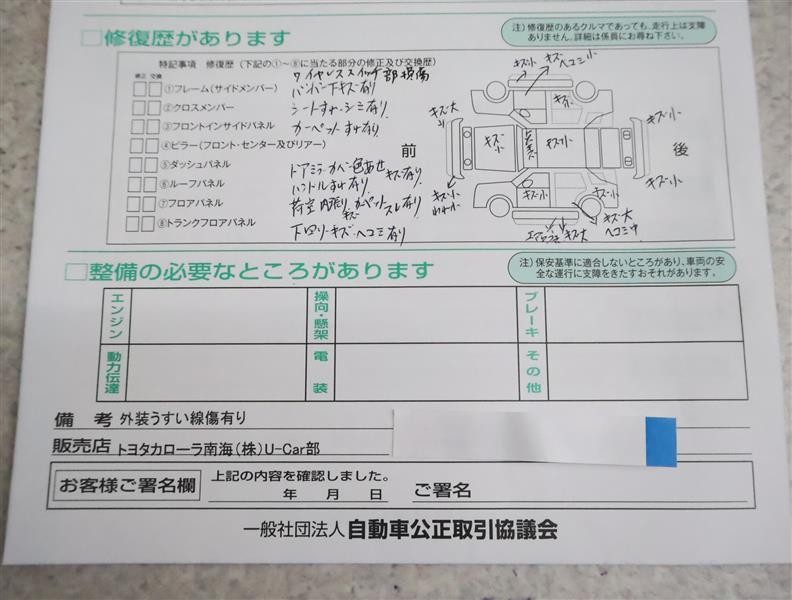 □修復歴があります
注）修復歴のあるクルマであっても、走行上は支障
ありません。詳細は係員にお尋ね下さい。
特記事項 修復歴（下記の①～⑧に当たる部分の修正及び交換歴）
修正 交換
ワイヤレススイッチ部損傷
①フレーム（サイドメンバー）
バンパー下キズ有り
②クロスメンバー
シートすれ・シミ有り
③フロントインサイドパネル
カーペットすれ有り
④ピラー（フロント・センター及びリアー）
⑤ダッシュパネル
ドアミラーカバー色あせ キズ有り
⑥ルーフパネル
ハンドルすれ有り
⑦フロアパネル
荷室内張り キズ カーペットスレ有り
⑧トランクフロアパネル
下回り・キズ・ヘコミ有り
前
後
キズ小
キズ ヘコミ小
キズ大
キズ小
キズ小
キズ小
キズ小
キズ小
キズ小
キズ小
キズ小
キズ大
キズ大
ヘコミ中
□整備の必要なところがあります
注）保安基準に適合しないところがあり、車両の安
全な運行に支障をきたすおそれがあります。
エンジン
操向・懸架
ブレーキ
動力伝達
電装
その他
備考 外装うすい線傷有り
販売店 トヨタカローラ南海（株）U-Car部
お客様ご署名欄
上記の内容を確認しました。
年 月 日 ご署名
一般社団法人 自動車公正取引協議会